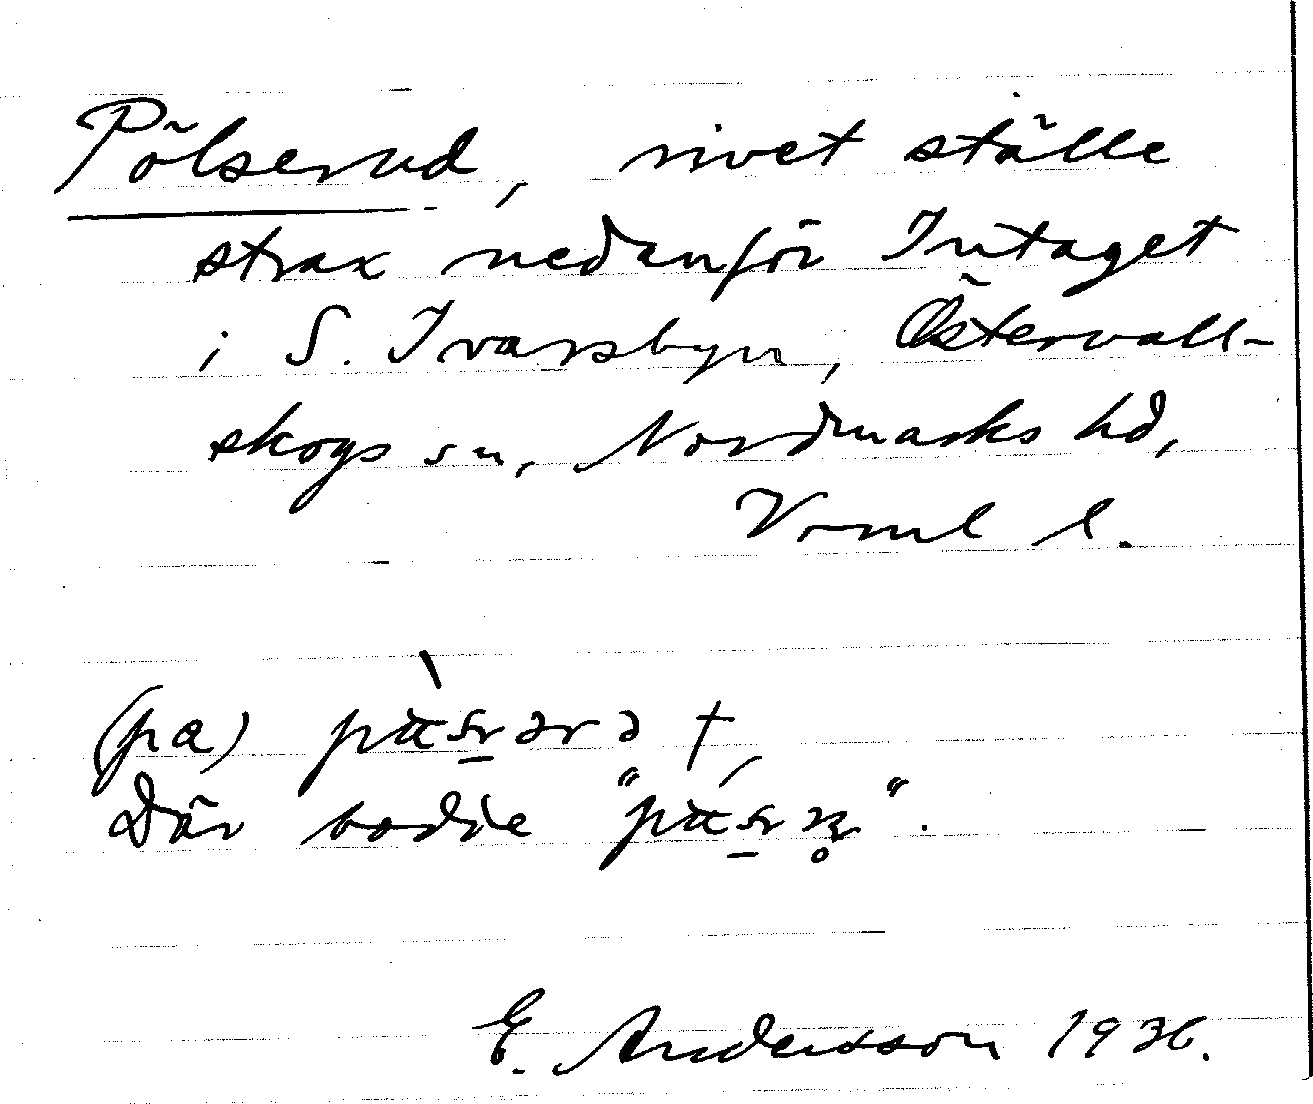 Pölserud, rivet ställe
strax nedanför Intaget
i S. Ivarsbyn, Östervall-
skogs sn, Nordmarks hd,
Vrml l.
(pa)
Där bodde
E. Andersson 1936.